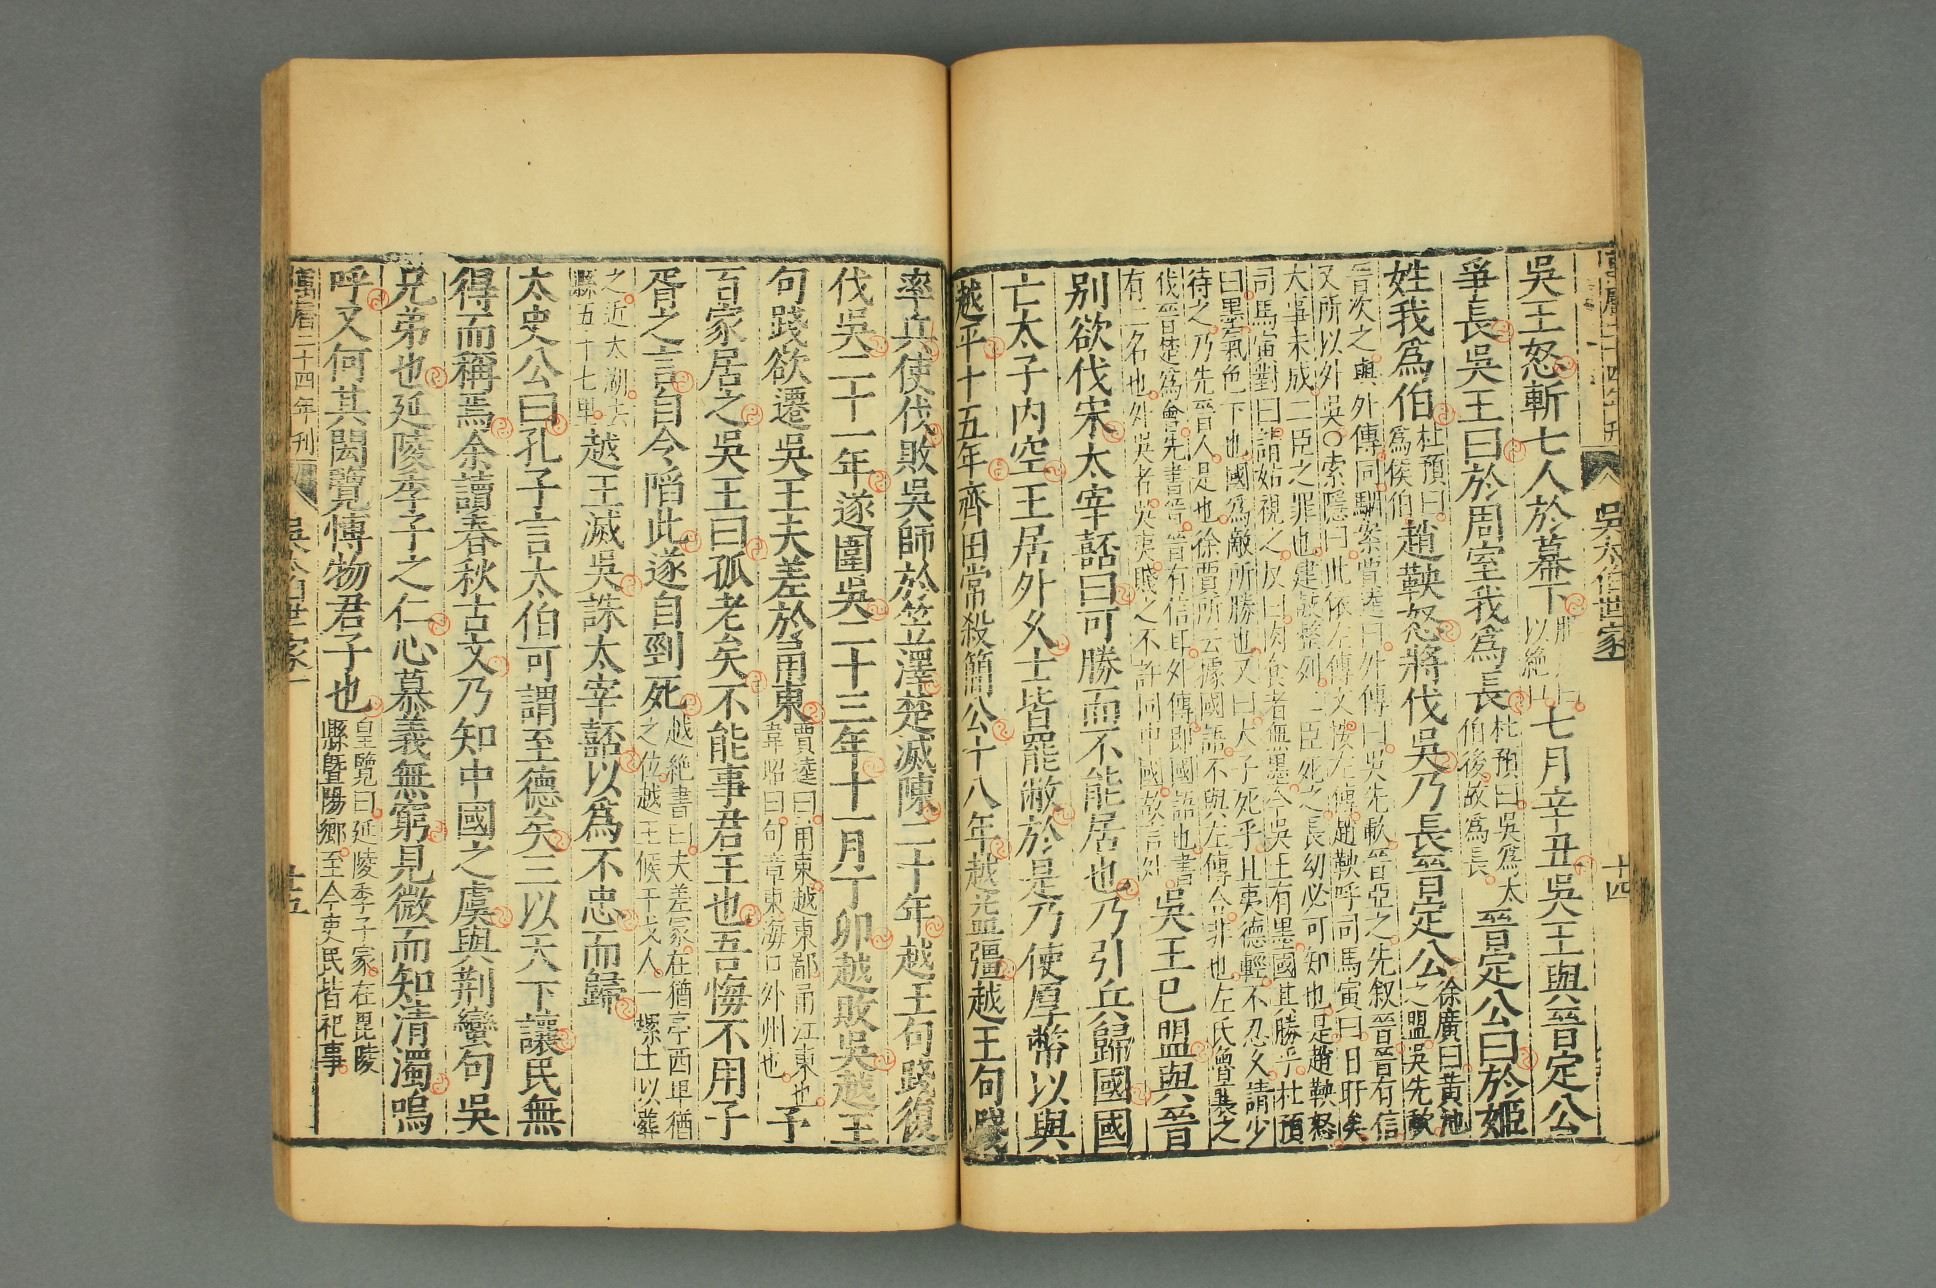 吳太伯世家一
十四
吳王怒斬七人於幕下 七月辛丑吳王與晉定公
爭長吳王曰於周室我爲長 杜預曰吳爲太伯後故爲長 晉定公曰於姬
姓我爲伯 杜預曰爲侯伯 趙鞅怒將伐吳乃長晉定公 徐廣曰黃池之盟吳先歃
晉次之與外傳同駰案賈逵曰外傳曰吳先歃晉亞之先叙晉晉有信
又所以外吳○索隱曰此依左傳文按左傳趙鞅呼司馬寅曰日旰矣
大事未成二臣之罪也建鼓整列二臣死之長幼必可知也是趙鞅怒
司馬寅對曰請姑視之反曰肉食者無墨今吳王有墨國其勝乎杜預
曰墨氣色下也國爲敵所勝也又曰大子死乎且夷德輕不忍久請少
待之乃先晉人是也徐賈所云據國語不與左傳合非也左氏魯襄之
伐晉楚爲會先書晉晉有信耳外傳即國語也書
有二名也外吳者吳夷賤之不許同中國故言外
吳王已盟與晉
別欲伐宋太宰嚭曰可勝而不能居也乃引兵歸國國
亡太子內空王居外久士皆罷敝於是乃使厚幣以與
越平十五年齊田常殺簡公十八年越益彊越王句踐
率兵使伐敗吳師於笠澤楚滅陳二十年越王句踐復
伐吳二十一年遂圍吳二十三年十一月丁卯越敗吳越王
句踐欲遷吳王夫差於甬東 賈逵曰甬東越東鄙甬江東也韋昭曰句章東海口外州也 予
百家居之吳王曰孤老矣不能事君王也吾悔不用子
胥之言自令陷此遂自剄死 越絕書曰夫差冢在猶亭西卑猶之位越王候干戈人一㙮土以葬
之近太湖去縣五十七里 越王滅吳誅太宰嚭以爲不忠而歸
太史公曰孔子言太伯可謂至德矣三以天下讓民無
得而稱焉余讀春秋古文乃知中國之虞與荆蠻句吳
兄弟也延陵季子之仁心慕義無窮見微而知淸濁嗚
呼又何其閎覽博物君子也 皇覽曰延陵季子冢在毘陵縣暨陽鄉至今吏民皆祀事
萬曆二十四年刊
吳太伯世家一
十五